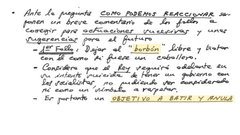 • Ante la pregunta COMO PODEMOS REACCIONAR se
ponen un breve comentario de los fallos a
corregir para actuaciones sucesivas y unas
sugerencias para el futuro
- 1er Fallo: Dejar al "borbón" libre y tratar
con él como si fuese un caballero.
- Considero que al Rey seguirá adelante en
su intento suicida de tener un gobierno con
los socialistas, no pudiendo ser considerado
ni como un símbolo a respetar.
- Es por tanto un OBJETIVO A BATIR Y ANULA